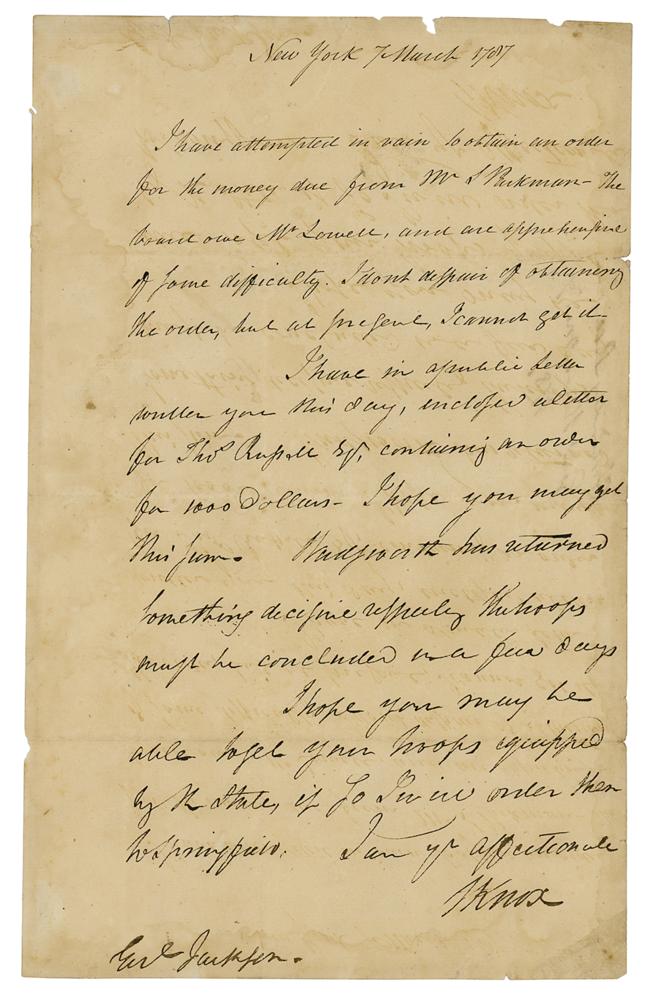 New York 7 March 1787
I have attempted in vain to obtain an order
for the money due from Mr S Parkman – The
board owe Mr Lowell, and are apprehensive
of some difficulty. I dont despair of obtaining
the order, but at present, I cannot get it –
I have in a public letter
written you this day, enclosed a letter
for Thos Russell Esqr, containing an order
for 1000 Dollars – I hope you may get
this sum. Wadsworth has returned
something decisive respecting the troops
must be concluded in a few days
I hope you may be
able to get your troops equipped
by the State, if so I will order them
to Springfield. I am yr affectionate
HKnox
Genl Jackson.